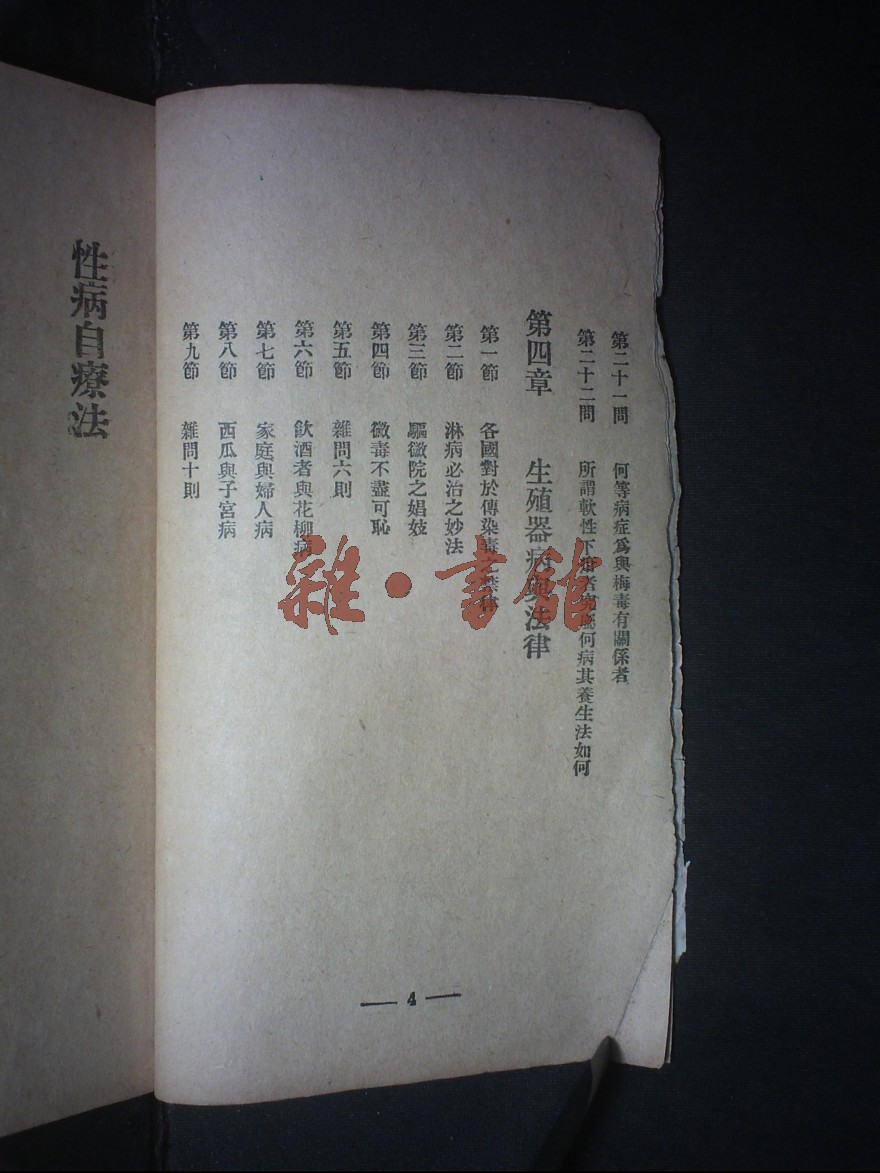 第二十一問 何等病症爲與梅毒有關係者
第二十二問 所謂軟性下疳者 何病其養生法如何
第四章 生殖器病與法律
第一節 各國對於傳染毒之禁律
第二節 淋病必治之妙法
第三節 驅黴院之娼妓
第四節 黴毒不盡可恥
第五節 雜問六則
第六節 飲酒者與花柳病
第七節 家庭與婦人病
第八節 西瓜與子宮病
第九節 雜問十則
4
性病自療法
雜·書館